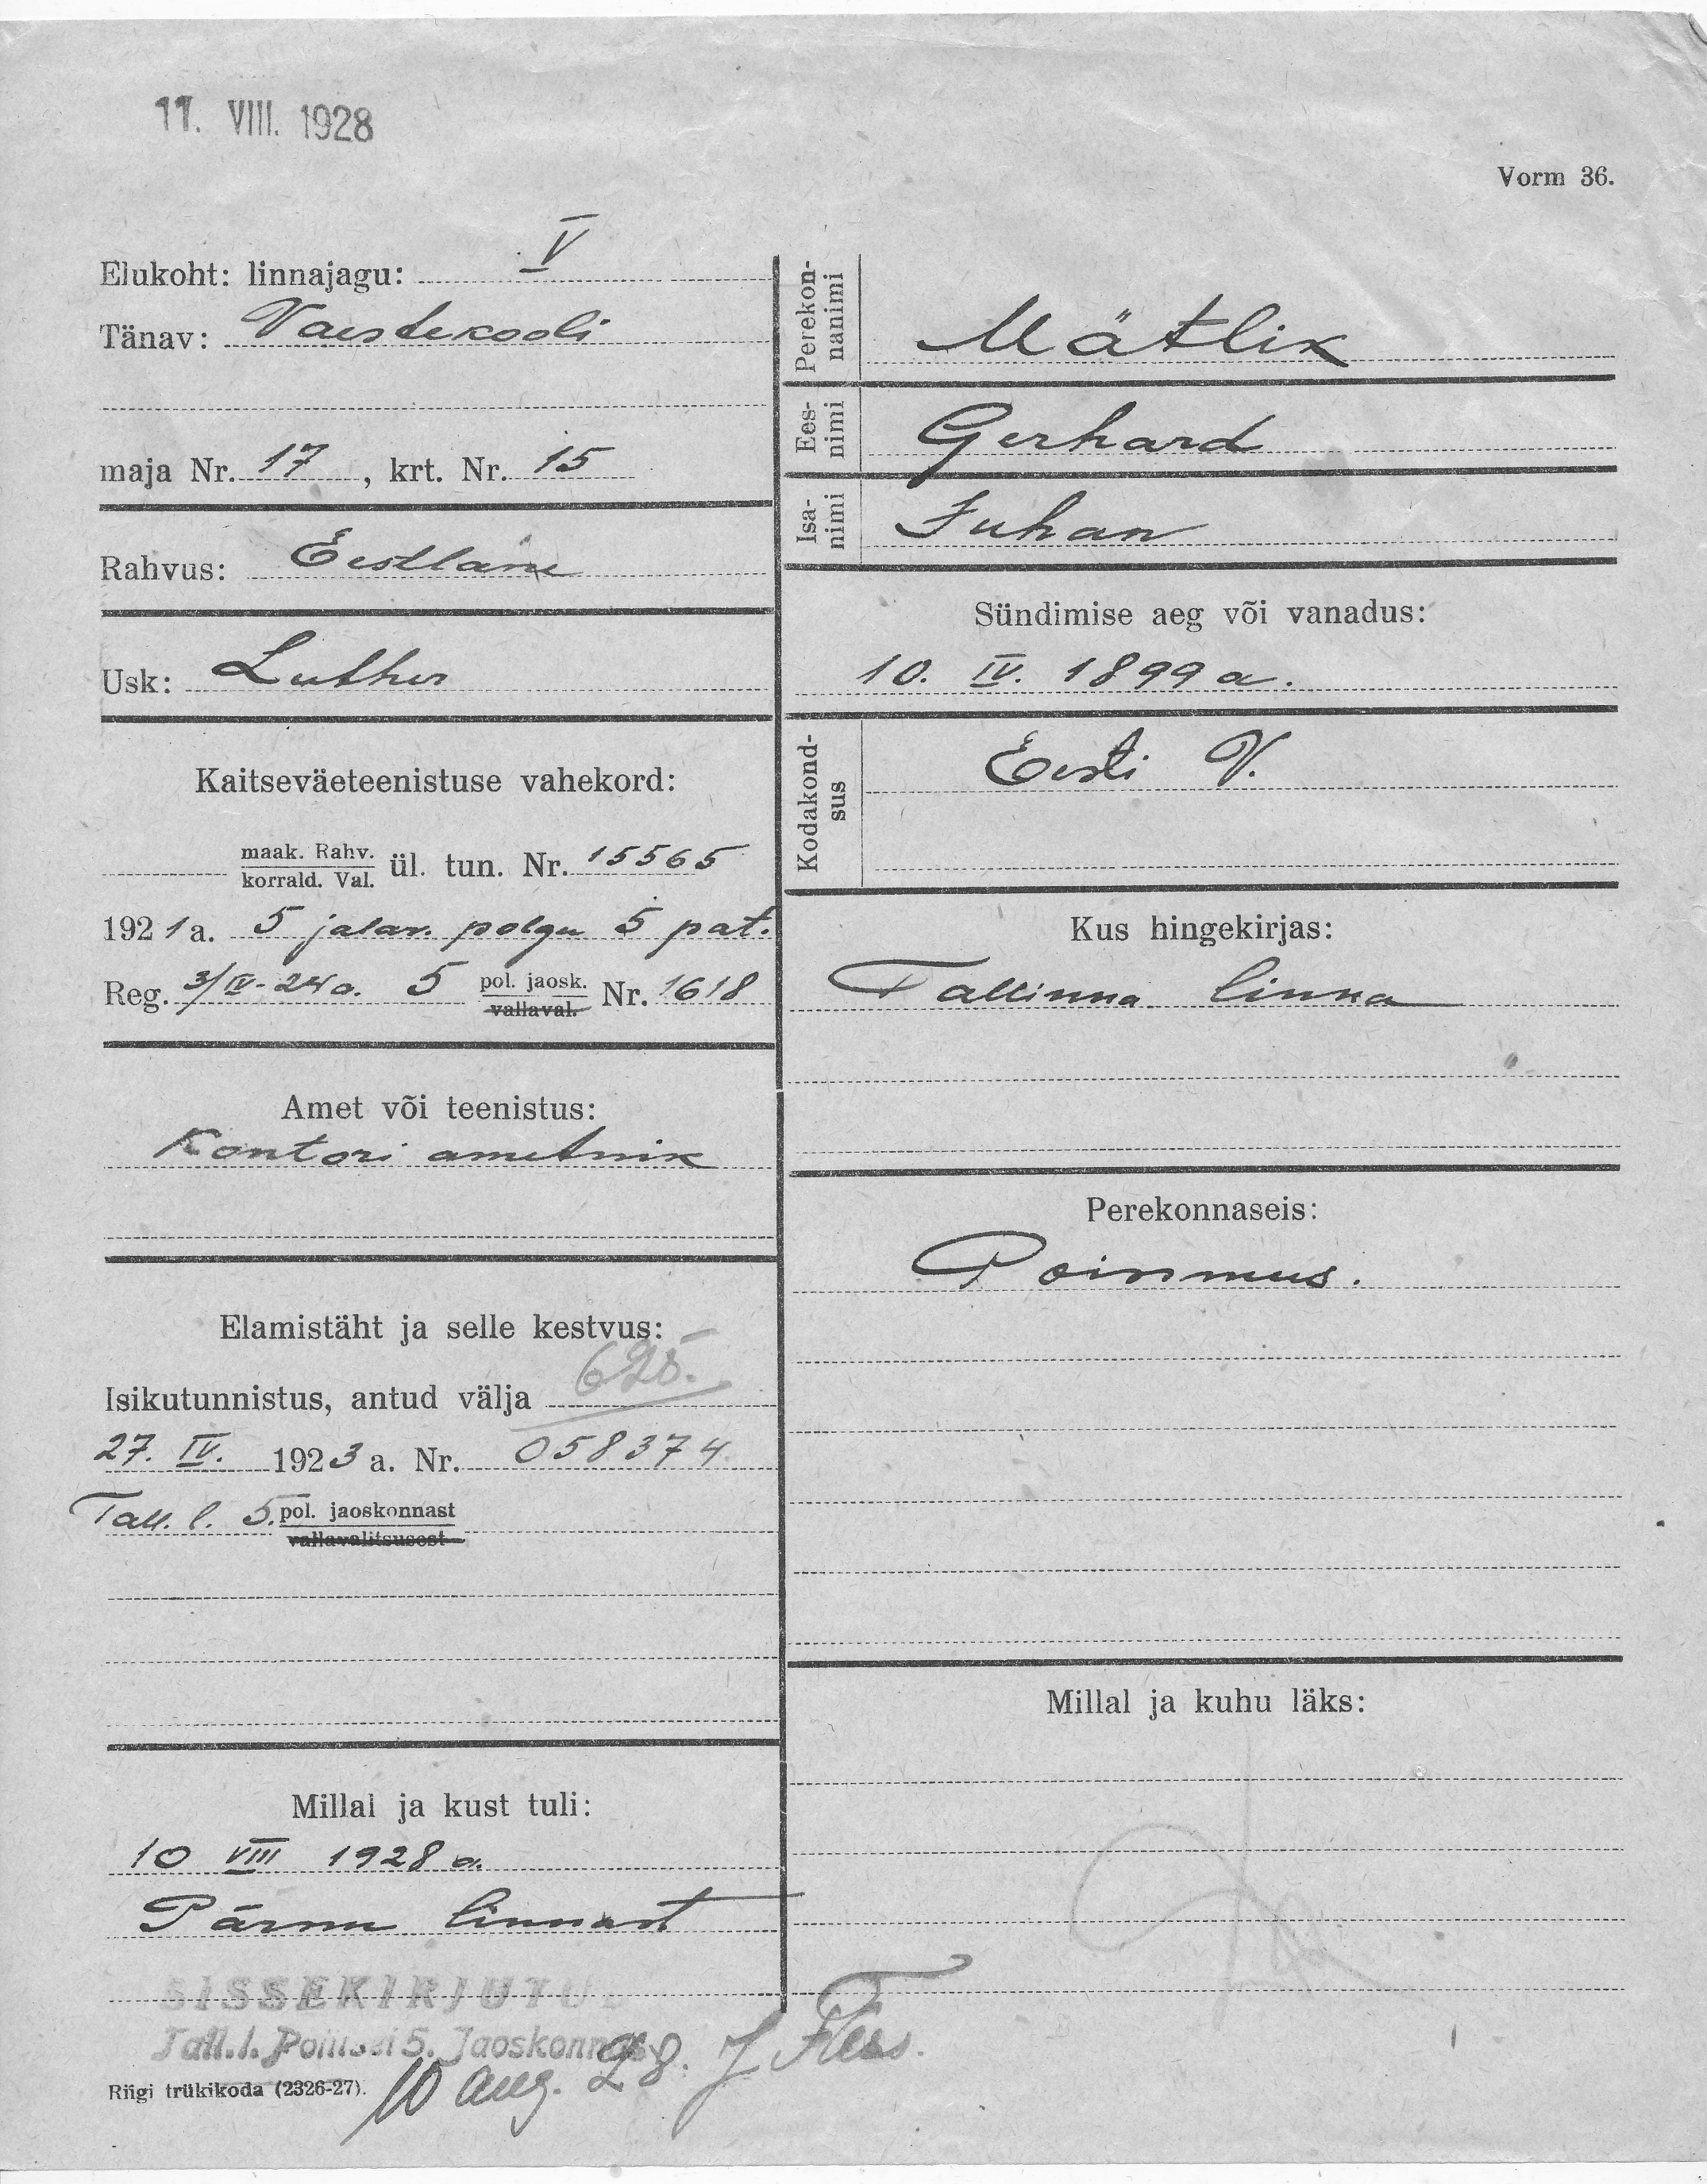 11. VIII. 1928
Vorm 36.
Elukoht: linnajagu: V
Tänav: Vaestekooli
maja Nr. 17, krt. Nr. 15
Rahvus: Eestlane
Usk: Luther
Kaitseväeteenistuse vahekord:
maak. Rahv.
korrald. Val. ül. tun. Nr. 15565
1921 a. 5 jalav. polgu 5 pat.
Reg. 3/IV-24 a. 5 pol. jaosk. Nr. 1618
vallaval.
Amet või teenistus:
Kontori ametnik
Elamistäht ja selle kestvus:
Isikutunnistus, antud välja
27. IV. 1923 a. Nr. 058374
Tall. l. 5. pol. jaoskonnast
vallavalitsusest
Millal ja kust tuli:
10 VIII 1928 a.
Pärnu linnast
SISSEKIRJUTU
Tall. l. Politsei 5. Jaoskonnas
10 aug. 28.
Riigi trükikoda (2326-27).
Perekonnanimi Mätlik
Eesnimi Gerhard
Isanimi Juhan
Sündimise aeg või vanadus:
10. IV. 1899 a.
Kodakondsus Eesti V.
Kus hingekirjas:
Tallinna linna
Perekonnaseis:
Poissmees.
Millal ja kuhu läks: